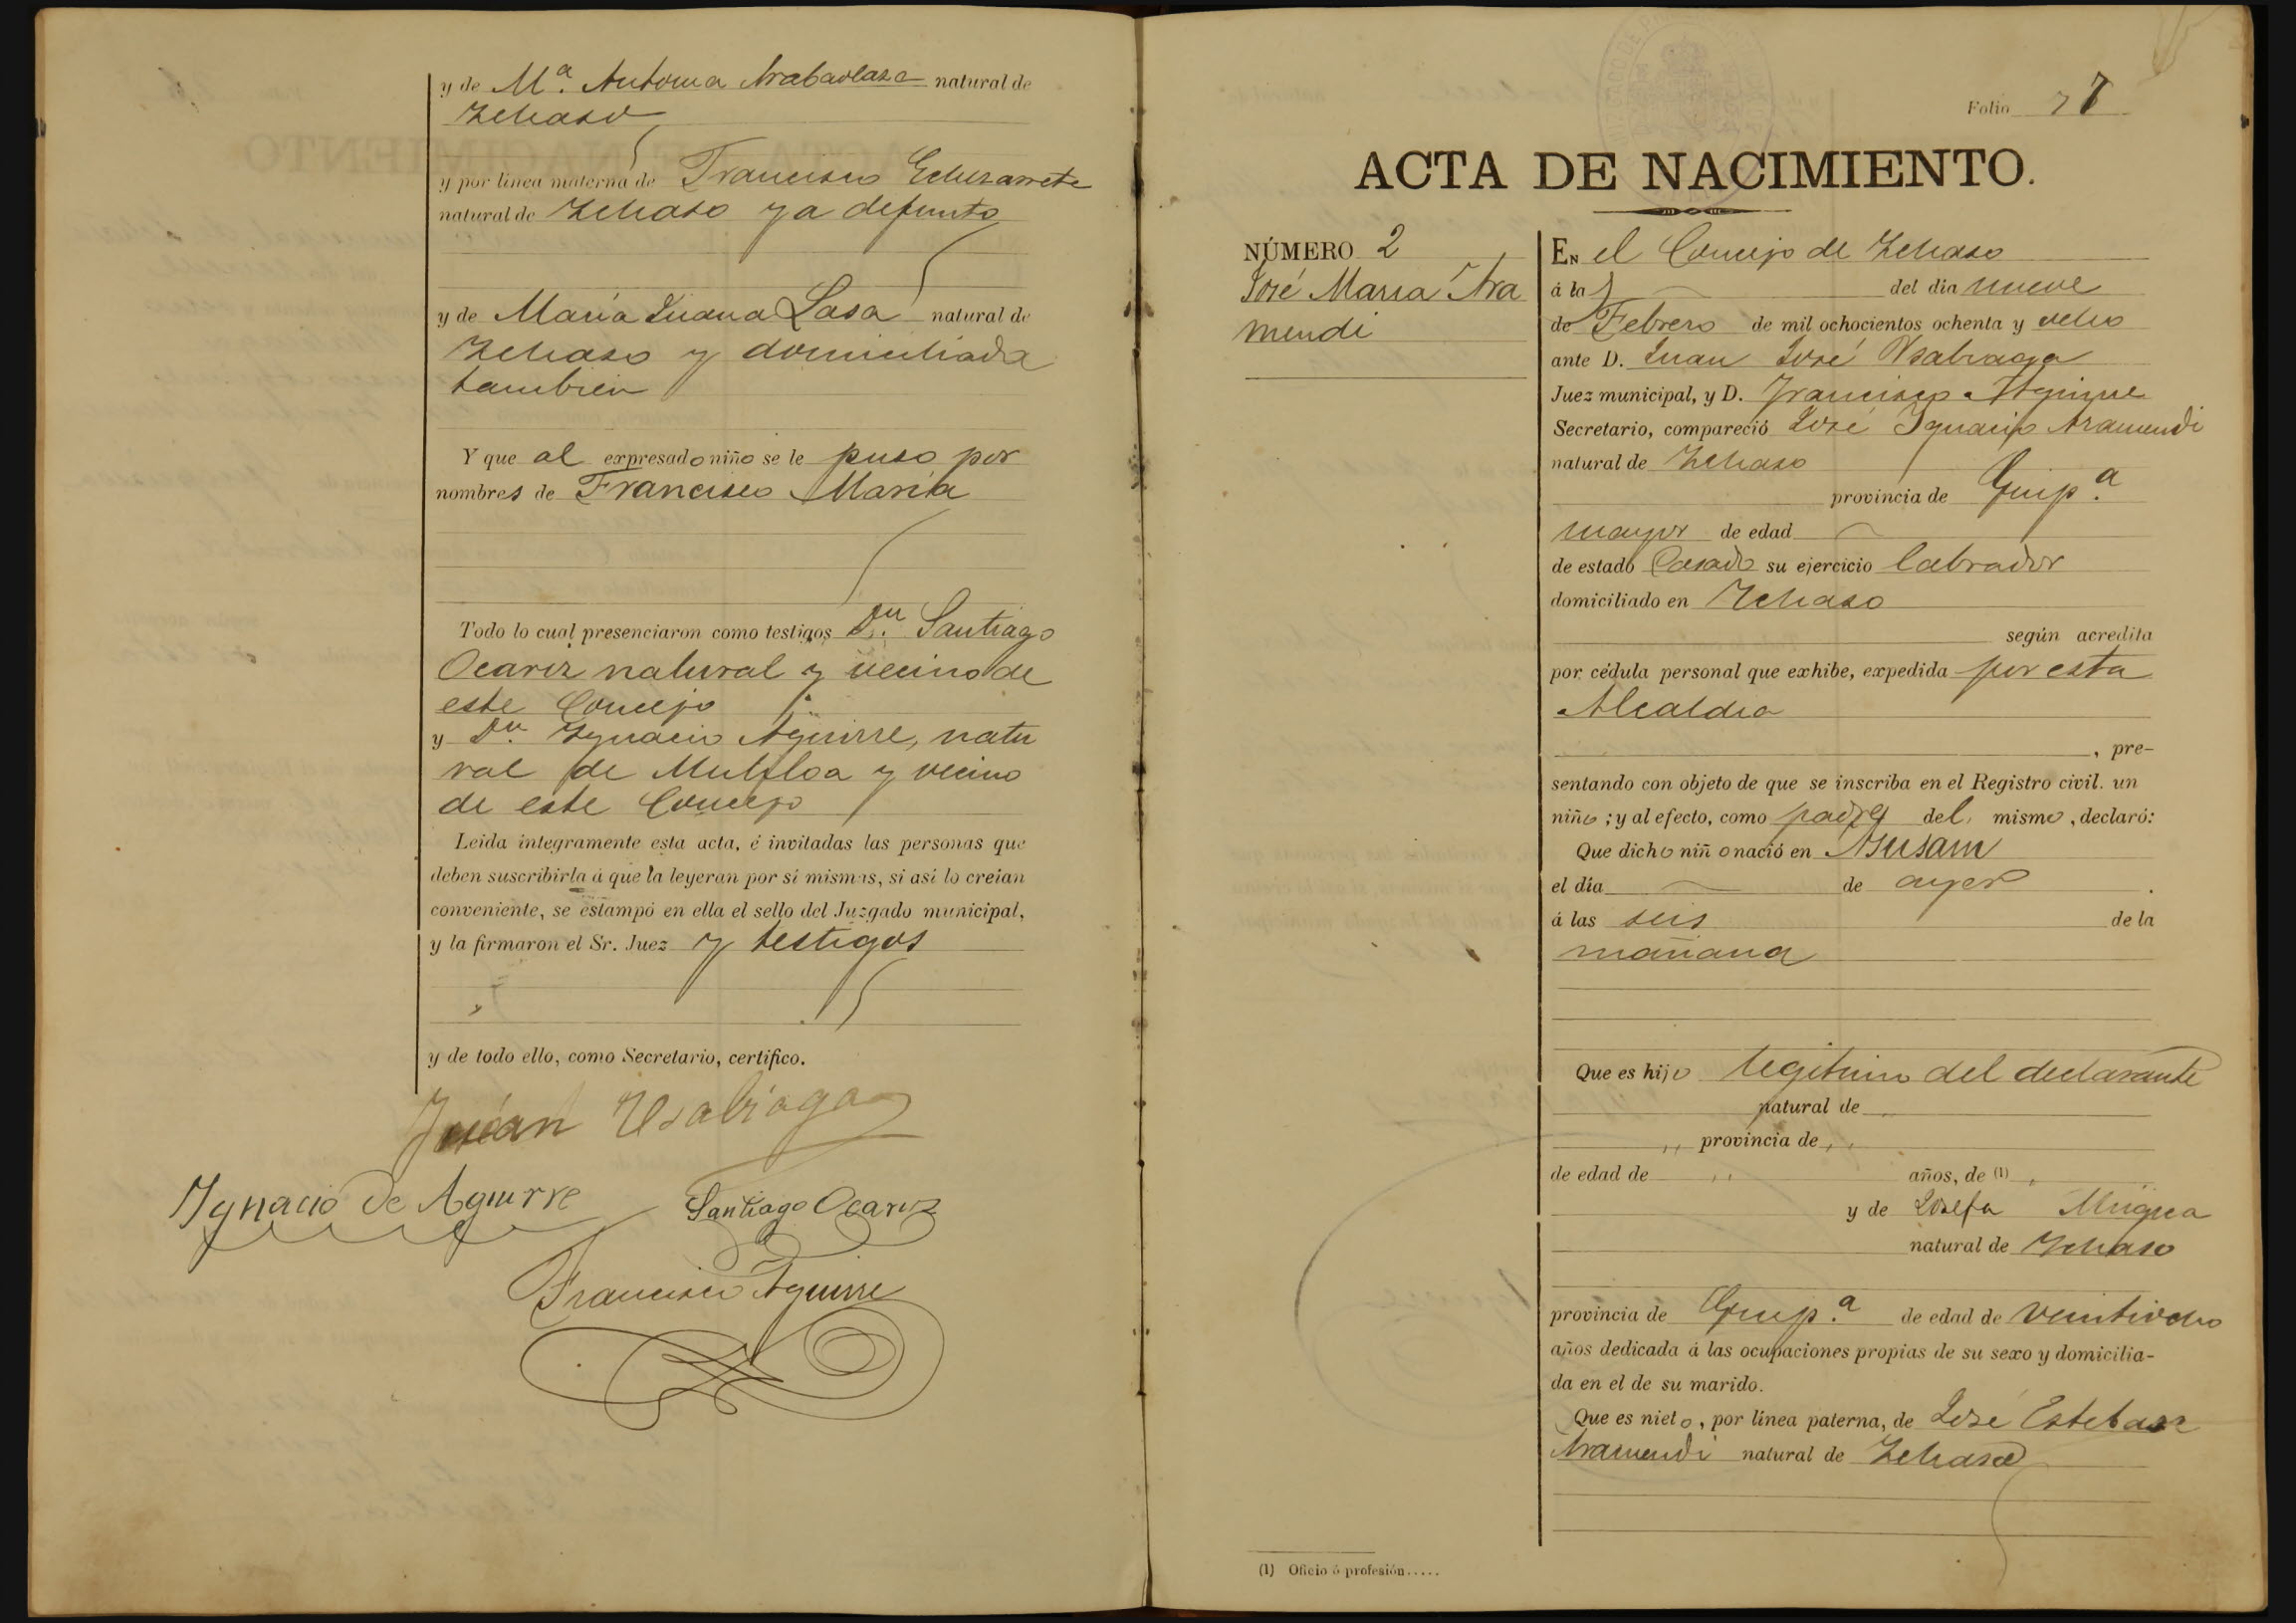 y de Mª. Antonia Arabaolaza natural de
Ychaso
y por línea materna de Francisco Echezarreta
natural de Ychaso ya defunto
y de María Juana Lasa natural de
Ychaso y domiciliada
tambien
Y que al expresado niño se le puso por
nombres de Francisco María
Todo lo cual presenciaron como testigos Dn. Santiago
Ocariz natural y vecino de
este Concejo
y Dn. Ygnacio Aguirre, natu
ral de Mutiloa y vecino
de este Concejo
Leida íntegramente esta acta, é invitadas las personas que
deben suscribirla á que la leyeran por sí mismas, si así lo creían
conveniente, se estampó en ella el sello del Juzgado municipal,
y la firmaron el Sr. Juez y testigos
y de todo ello, como Secretario, certifico.
Juan Usabiaga
Ygnacio de Aguirre Santiago Ocariz
Francisco Aguirre
Folio 7
ACTA DE NACIMIENTO.
NÚMERO 2
José Maria Ara
mendi
EN el Concejo de Ychaso
á la del día nueve
de Febrero de mil ochocientos ochenta y ocho
ante D. Juan José Usabiaga
Juez municipal, y D. Francisco Aguirre
Secretario, compareció José Ygnacio Aramendi
natural de Ychaso
provincia de Guipª.
mayor de edad
de estado Casado su ejercicio labrador
domiciliado en Ychaso
según acredita
por cédula personal que exhibe, expedida por esta
Alcaldia
, pre-
sentando con objeto de que se inscriba en el Registro civil. un
niño; y al efecto, como padre del mismo, declaró:
Que dicho niño nació en
el día de ayer
á las seis de la
mañana
Que es hijo legitimo del declarante
natural de
,, provincia de ,,
de edad de ,, años, de (1) ,
y de Josefa Mugica
natural de Ychaso
provincia de Guipª. de edad de veintiocho
años dedicada á las ocupaciones propias de su sexo y domicilia-
da en el de su marido.
Que es nieto, por línea paterna, de José Esteban
Aramendi natural de Ychaso
(1) Oficio ó profesión.....